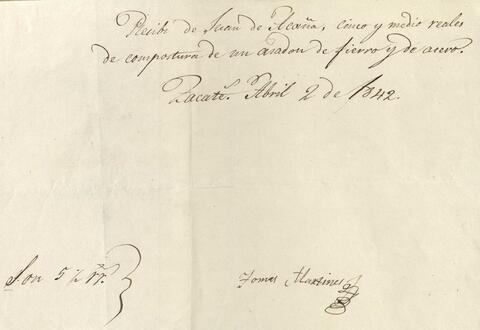 Recibi de Juan de Ocaña, cinco y medio reales
de compostura de un asadon de fierro y de asero.
Zacats. Abril 2 de 1842.
Son 5 ½ rr.
Tomas Martines